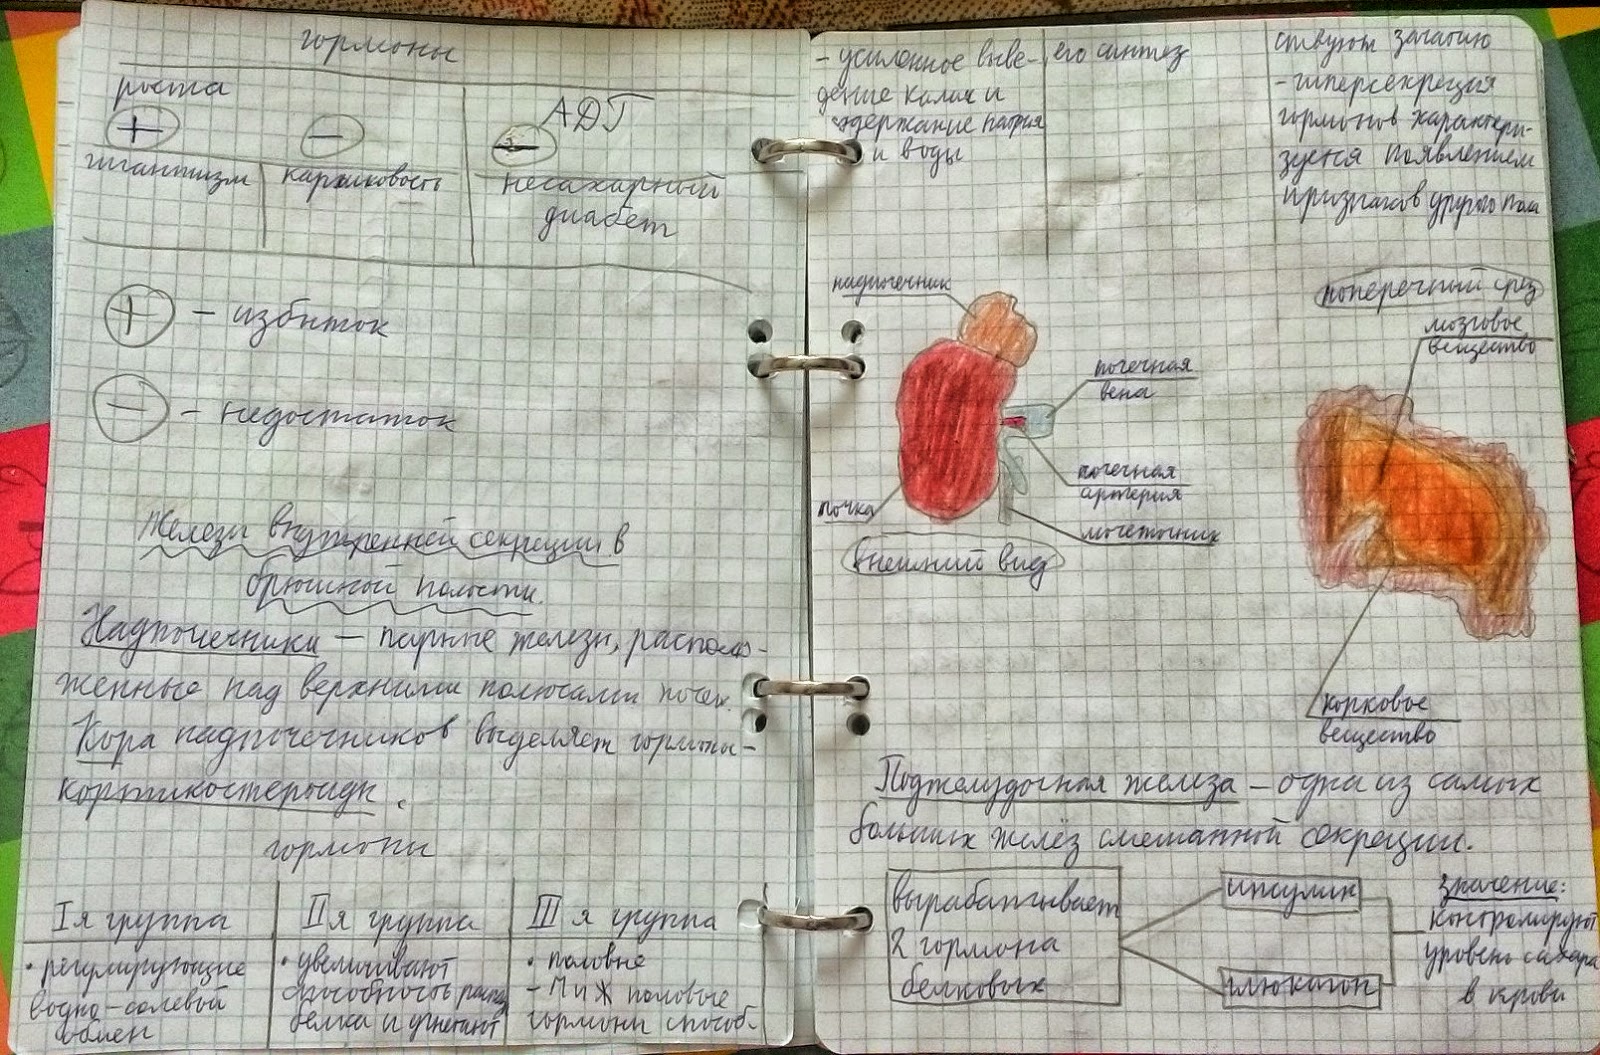 гормоны
роста
АДГ
+
−
−
гигантизм
карликовость
несахарный
диабет
+ - избыток
− - недостаток
Железы внутренней секреции в
брюшной полости.
Надпочечники – парные железы, располо-
женные над верхними полюсами почек.
Кора надпочечников выделяет гормоны-
кортикостероиды.
гормоны
I я группа
II я группа
III я группа
• регулирующие
водно-солевой
обмен
• увеличивают
способность распад
белка и угнетают
• половые
- М и Ж половые
гормоны способ-
- усиленное выве-
дение калия и
содержание натрия
и воды
его синтез
ствуют зачатию
- гиперсекреция
гормонов характери-
зуется появлением
признаков другого пола
надпочечник
почечная
вена
почечная
артерия
мочеточник
почка
внешний вид
поперечный срез
мозговое
вещество
корковое
вещество
Поджелудочная железа – одна из самых
больших желёз смешанной секреции.
вырабатывает
2 гормона
белковых
инсулин
глюкагон
значение:
контролируют
уровень сахара
в крови